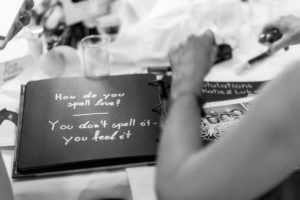 How do you
spell love?
You don't spell it
you feel it